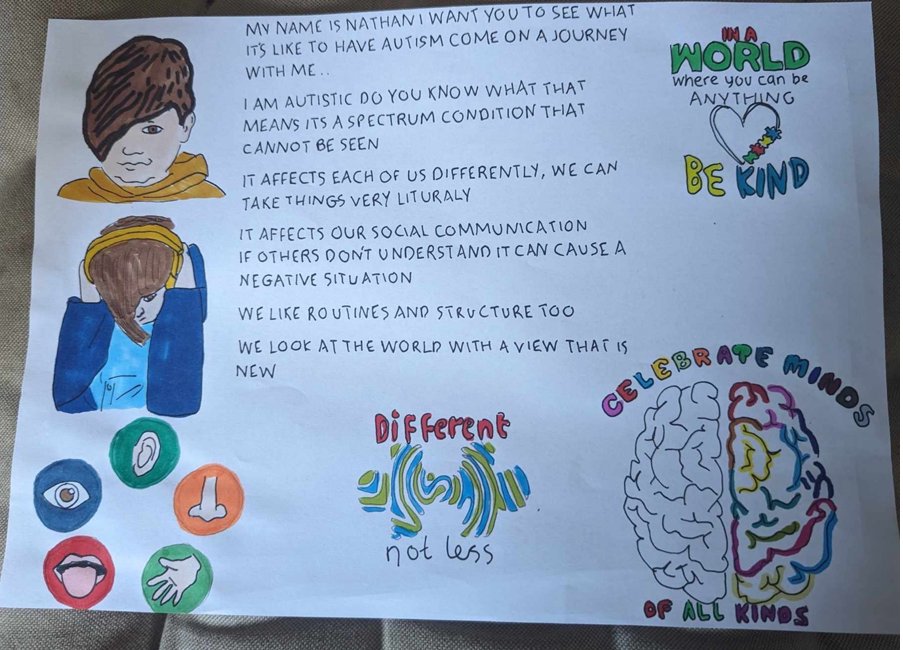 MY NAME IS NATHAN I WANT YOU TO SEE WHAT
IT'S LIKE TO HAVE AUTISM COME ON A JOURNEY
WITH ME..
I AM AUTISTIC DO YOU KNOW WHAT THAT
MEANS ITS A SPECTRUM CONDITION THAT
CANNOT BE SEEN
IT AFFECTS EACH OF US DIFFERENTLY, WE CAN
TAKE THINGS VERY LITURALY
IT AFFECTS OUR SOCIAL COMMUNICATION
IF OTHERS DON'T UNDERSTAND IT CAN CAUSE A
NEGATIVE SITUATION
WE LIKE ROUTINES AND STRUCTURE TOO
WE LOOK AT THE WORLD WITH A VIEW THAT IS
NEW
IN A
WORLD
where you can be
ANYTHING
BE KIND
Different
not less
CELEBRATE MINDS
OF ALL KINDS